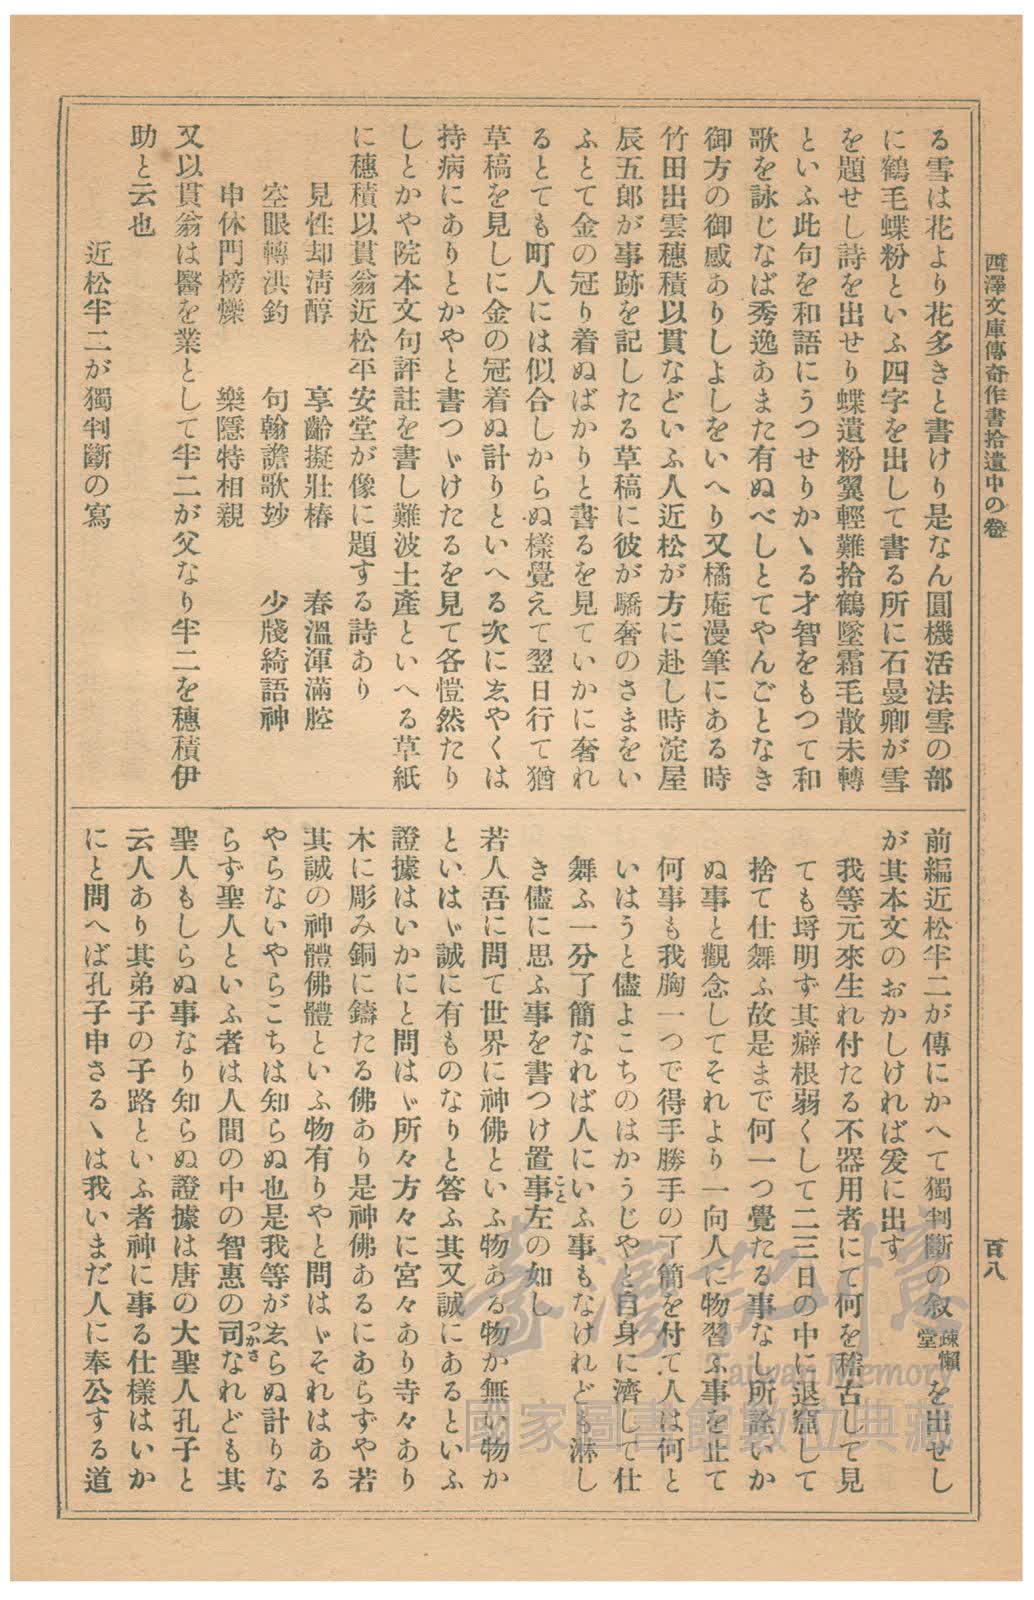 西澤文庫傳奇作書拾遺中の卷
百八
る雪は花より花多きと書けり是なん圓機活法雪の部
に鶴毛蝶粉といふ四字を出して書る所に石曼卿が雪
を題せし詩を出せり蝶遺粉翼輕難拾鶴墜霜毛散未轉
といふ此句を和語にうつせりかゝる才智をもつて和
歌を詠じなば秀逸あまた有ぬべしとてやんごとなき
御方の御感ありしよしをいへり又橘庵漫筆にある時
竹田出雲穗積以貫などいふ人近松が方に赴し時淀屋
辰五郎が事跡を記したる草稿に彼が驕奢のさまをい
ふとて金の冠り着ぬばかりと書るを見ていかに奢れ
るとても町人には似合しからぬ樣覺えて翌日行て猶
草稿を見しに金の冠着ぬ計りといへる次にゑやくは
持病にありとかやと書つゞけたるを見て各愷然たり
しとかや院本文句評註を書し難波土產といへる草紙
に穗積以貫翁近松平安堂が像に題する詩あり
見性却淸醇　享齡擬壯椿　春溫渾滿腔
空眼轉洪鈞　句翰譫歌妙　少牋綺語神
申休門榜爍　樂隱特相親
又以貫翁は醫を業として半二が父なり半二を穗積伊
助と云也
近松半二が獨判斷の寫
前編近松半二が傳にかへて獨判斷の叙疎懶堂を出せし
が其本文のおかしければ爰に出す
我等元來生れ付たる不器用者にて何を稽古して見
ても埒明ず其癖根弱くして二三日の中に退窟して
捨て仕舞ふ故是まで何一つ覺たる事なし所詮いか
ぬ事と觀念してそれより一向人に物習ふ事を止て
何事も我胸一つで得手勝手の了簡を付て人は何と
いはうと儘よこちのはかうじやと自身に濟して仕
舞ふ一分了簡なれば人にいふ事もなけれども淋し
き儘に思ふ事を書つけ置事こと左の如し
若人吾に問て世界に神佛といふ物ある物か無い物か
といはゞ誠に有ものなりと答ふ其又誠にあるといふ
證據はいかにと問はゞ所々方々に宮々あり寺々あり
木に彫み銅に鑄たる佛あり是神佛あるにあらずや若
其誠の神體佛體といふ物有りやと問はゞそれはある
やらないやらこちは知らぬ也是我等がゑらぬ計りな
らず聖人といふ者は人間の中の智惠の司つかさなれども其
聖人もしらぬ事なり知らぬ證據は唐の大聖人孔子と
云人あり其弟子の子路といふ者神に事る仕樣はいか
にと問へば孔子申さるゝは我いまだ人に奉公する道
臺灣記憶
Taiwan Memory
國家圖書館數位典藏